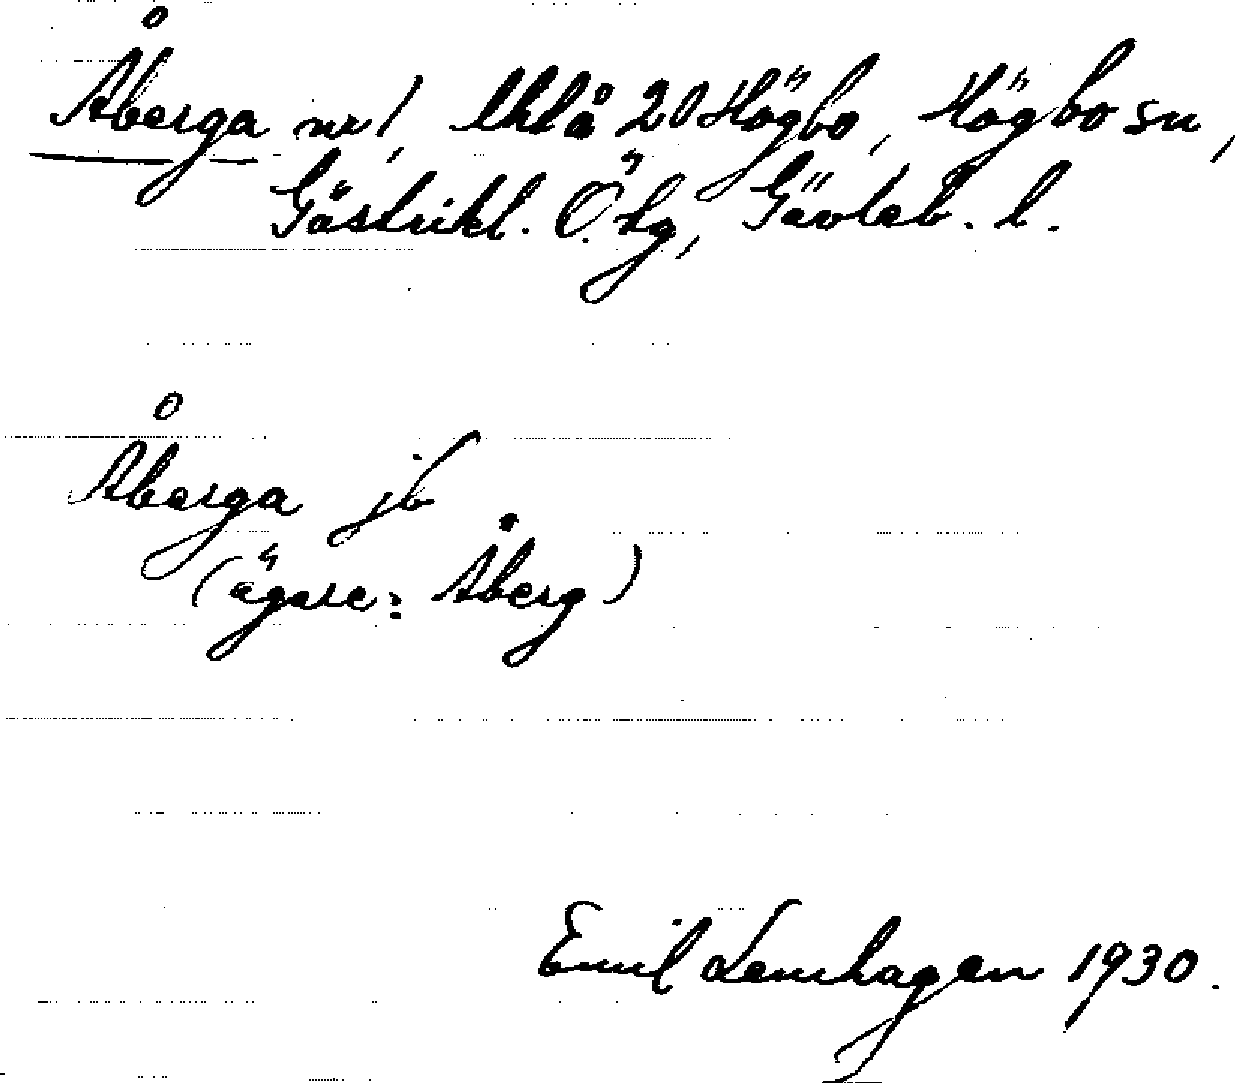 Åberga nr 1, lhlå 20 Högbo, Högbo sn,
Gästrikl. Ö. tg, Gävleb. l.
Åberga jb
(ägare: Åberg)
Emil Lemhagen 1930.